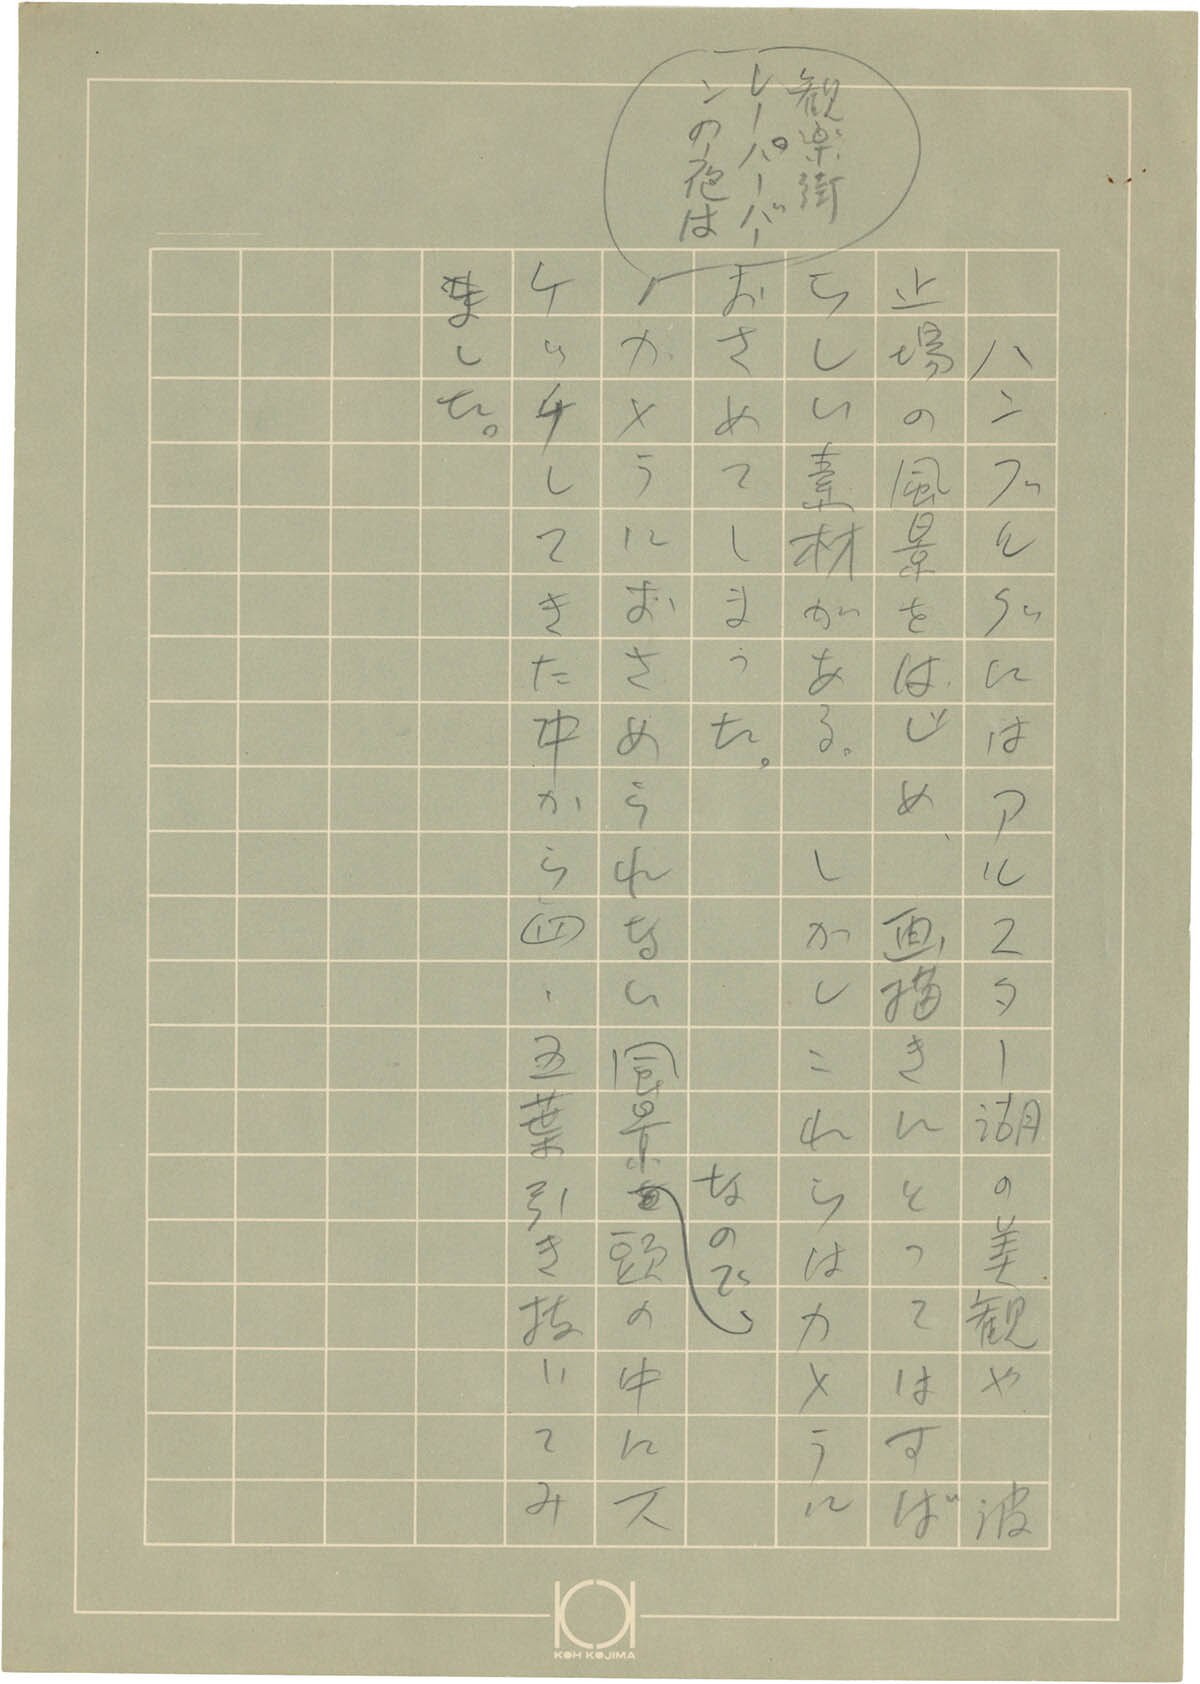 観楽街
レーパーバー
ンの夜は
ハンブルグにはアルスター湖の美観や波
止場の風景をはじめ、画描きにとってはすば
らしい素材がある。しかしこれらはカメラに
おさめてしまった。
なので、
カメラにおさめられない風景を頭の中にス
ケッチしてきた中から四、五葉引き抜いてみ
ました。
KOH KOJIMA